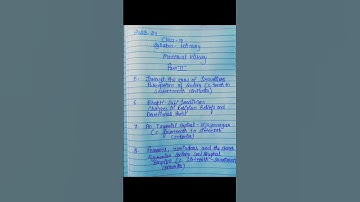 Class - 12
Syllabus - History
Medieval History
Part II
5. Through the eyes of Travellers
Perceptions of Society (c. tenth to
seventeenth centuries)
6. Bhakti-Sufi Traditions
Changes in Religious Beliefs and
Devotional Texts
7. An Imperial Capital - Vijayanagar
(c. fourteenth to sixteenth
centuries)
8. Peasants, zamindars and the State
Agrarian Society and Mughal
Empire (c. sixteenth - seventeenth
centuries)